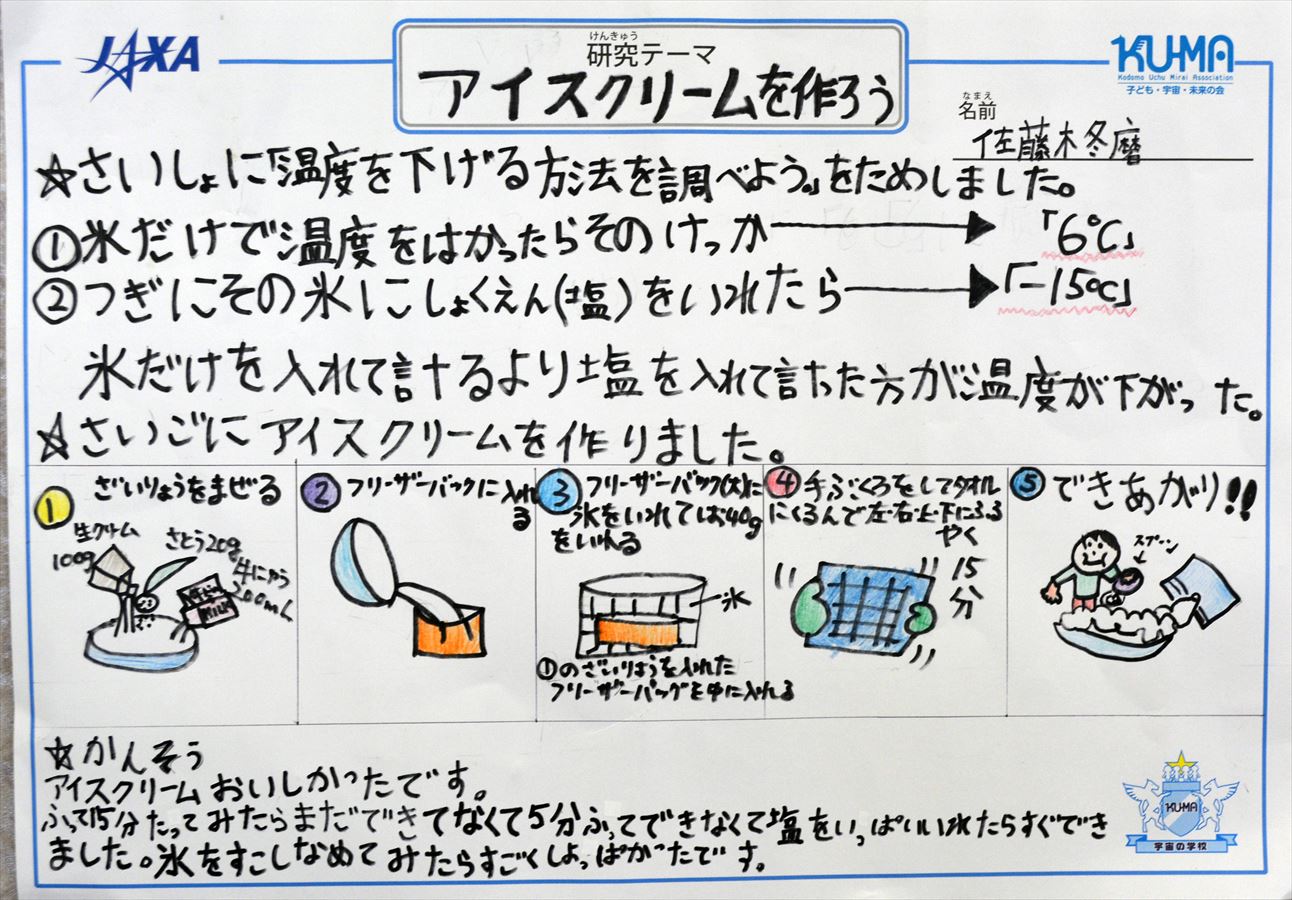 JAXA
けんきゅう
研究テーマ
アイスクリームを作ろう
KU-MA
Kodomo Uchu Mirai Association
子ども・宇宙・未来の会
なまえ
名前
佐藤木冬磨
☆さいしょに「温度を下げる方法を調べよう。」をためしました。
①氷だけで温度をはかったらそのけっか→「6℃」
②つぎにその氷にしょくえん(塩)をいれたら→「-15℃」
氷だけを入れて計するより塩を入れて計った方が温度が下がった。
☆さいごにアイスクリームを作りました。
① ざいりょうをまぜる
生クリーム
100g
さとう20g
牛にゅう
200mL
MILK
② フリーザーバックに入れ
る
③ フリーザーパック(大)に
氷をいれてしお40g
をいれる
氷
①のざいりょうを入れた
フリーザーバッグを中に入れる
④ 手ぶくろをしてタオル
にくるんで左・右・上・下にふる
やく
15
分
⑤ できあがり!!
スプーン
☆かんそう
アイスクリームおいしかったです。
ふって15分たってみたらまだできてなくて5分ふってできなくて塩をいっぱいいれたらすぐでき
ました。氷をすこしなめてみたらすごくしょっぱかったです。
KU-MA
宇宙の学校